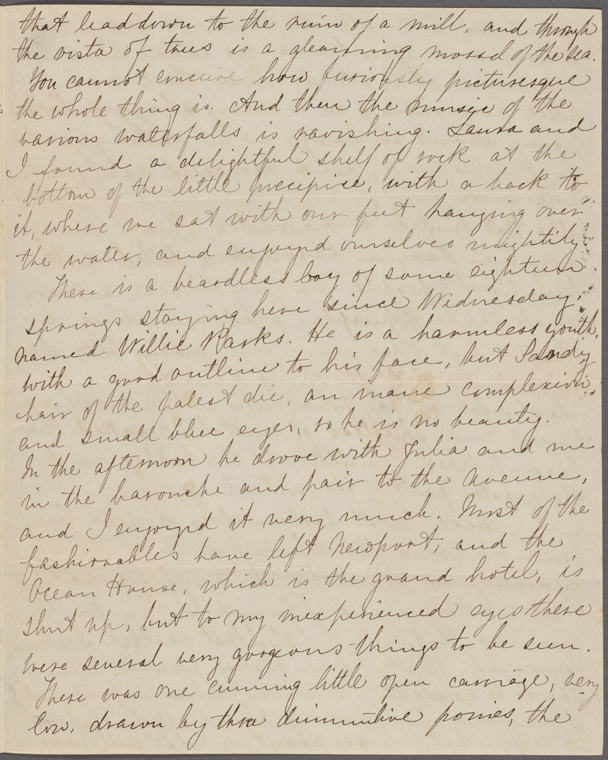 that lead down to the ruin of a mill, and through
the vista of trees is a gleaming morsel of the sea.
You cannot conceive how furiously picturesque
the whole thing is. And then the music of the
various waterfalls is ravishing. Laura and
I found a delightful shelf of rock at the
bottom of the little precipice, with a back to
it, where we sat with our feet hanging over
the water, and enjoyed ourselves mightily.
There is a beardless boy of some eighteen
springs staying here since Wednesday,
named Willie Parks. He is a harmless youth,
with a good outline to his face, but Sandy
hair of the palest die, an mane complexion,
and small blue eyes, so he is no beauty.
In the afternoon he drove with Julia and me
in the barouche and pair to the avenue,
and I enjoyed it very much. Most of the
fashionables have left Newport, and the
Ocean House, which is the grand hotel, is
shut up, but to my inexperienced eyes there
were several very gorgeous things to be seen.
There was one cunning little open carriage, very
low, drawn by two diminutive ponies, the